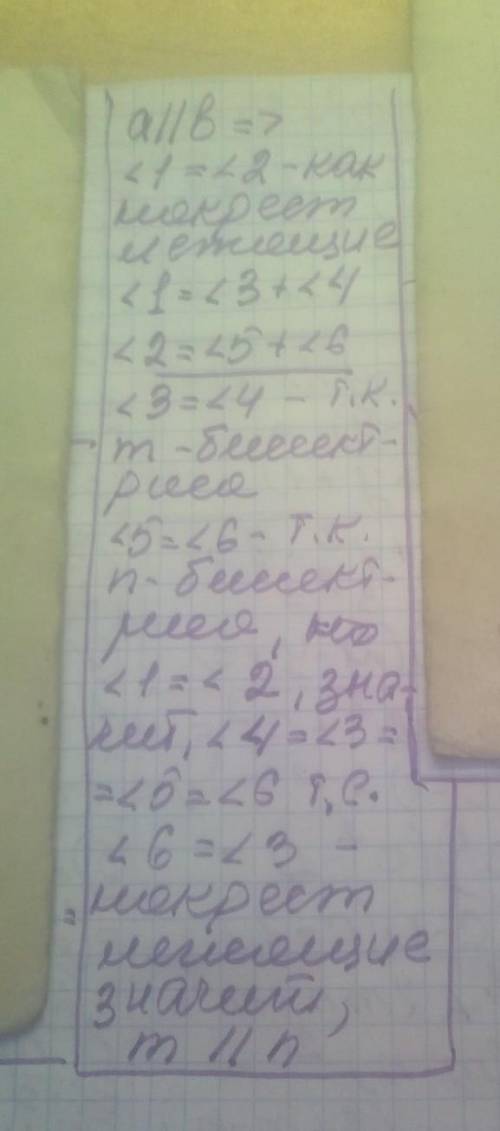 a||b =>
<1 = <2 - как
накрест
лежащие
<1 = <3 + <4
<2 = <5 + <6
<3 = <4 - т.к.
m - биссект-
риса
<5 = <6 - т.к.
n - биссект-
риса, но
<1 = <2, зна-
чит, <4 = <3 =
= <5 = <6 т.е.
<6 = <3 -
накрест
лежащие
значит,
m || n